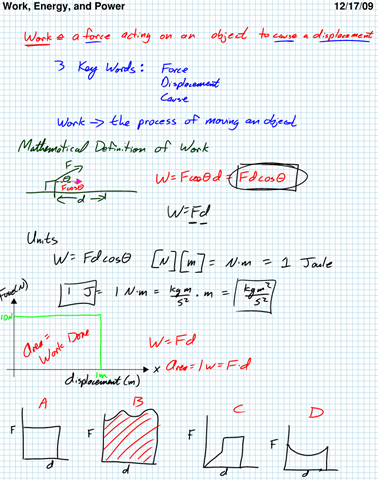 Work, Energy, and Power 12/17/09
Work is a force acting on an object to cause a displacement
3 Key Words: Force
Displacement
Cause
Work → the process of moving an object
Mathematical Definition of Work
F
θ
Fcosθ
d
W = Fcosθ d = Fdcosθ
W = Fd
Units
W = Fd cosθ [N][m] = N·m = 1 Joule
1 J = 1 N·m = kgm/s² · m = kgm²/s²
Force(N)
area =
Work Done
1m
displacement (m) x
W = Fd
area = lw = F·d
A B C D
F F F F
d d d d